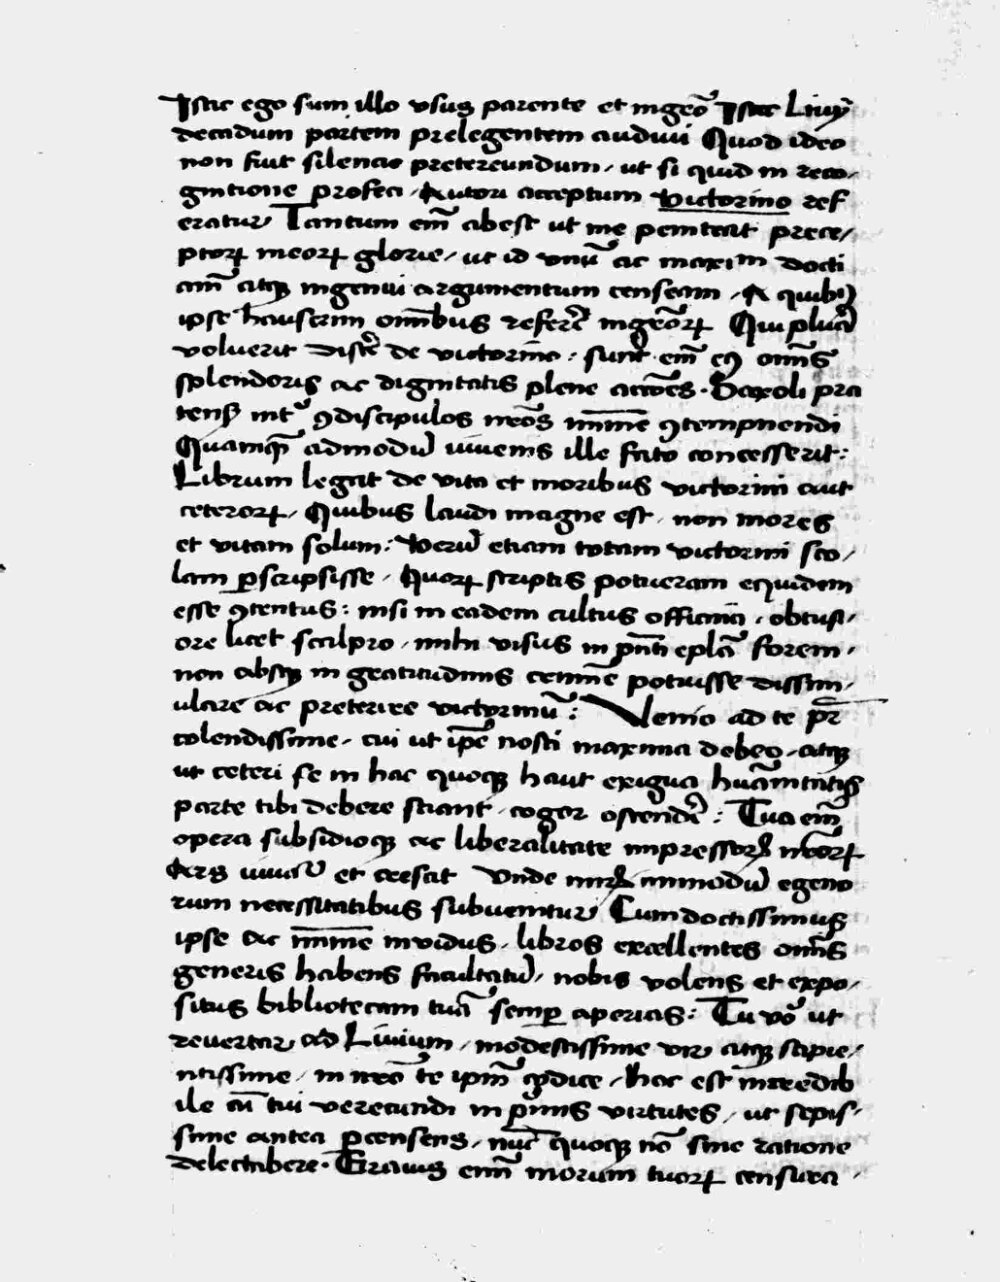 Istic ego sum illo vsus parente et ingẽo Istac Liuij
decadum partem prelegentem audiui Quod ideo
non fuit silencio pretereundum, ut si quid in reco-
gnitione profeci, Autori acceptum victorino ref
eratur Tantum em̃ abest ut me peniteat prece,
ptoꝝ meoꝝ glorie, ut id vnũ ac maximum docti
am̃ atqꝫ ingenui argumentum censeam, A quibꝰ
ipse hauserim om̃ibus referẽ ingẽoꝝ Qui plura
voluerit discẽ de victorino: sunt em̃ eꝰ om̃s
splendoris ac dignitatis plene acc̃oes. Saxoli pra
tensꝭ int̾ ꝯdiscipulos nr̃os mĩme ꝯtempnendi
Quamqꝫ admodũ iuuenis ille fato concesserit:
Librum legat de vita et moribus victorini aut
ceteroꝝ, Quibus laudi magne est, non mores
et vitam solum: Verũ etiam totam victorini sco,
lam ꝑscripsisse, Quoꝝ scriptis potueram equidem
esse ꝯtentus: nisi in eadem cultus officina, obtusi,
ore licet scalpro, mihi visus in pñti epl̃a forem,
non absqꝫ ingratitudinis crimĩe potuisse dissim,
ulare ac preterire victorinũ: Venio ad te pr̃
colendissime, cui ut ip̃e nosti maxima debeo, atqꝫ
ut ceteri se in hac quoqꝫ haut exigua hũanitatis
parte tibi debere sciant, cogor ostendẽ: Tua em̃
opera subsidioqꝫ ac liberalitate impressoꝝ nr̃oꝝ
Ars viuit et crescit Vnde mirũ inmodũ egeno
rum necessitatibus subuenitur Cum doctissimus
ipse ac mĩme inuidus, libros excellentes om̃s
generis habens facultatũ, nobis volens et expo,
situs bibliotecam tuã semꝑ aperias: Tu vo ut
reuertar ad Liuium, modestissime vir atqꝫ sapie,
ntissime, in nr̃o te ipm̃ codice, hac est incredib
ile cũ tui verecundi in p̃mis virtutes, ut sepis,
sime antea ꝑcensens, nũc quoqꝫ nõ sine ratione
delectabere. Grauis em̃ morum tuoꝝ censura,